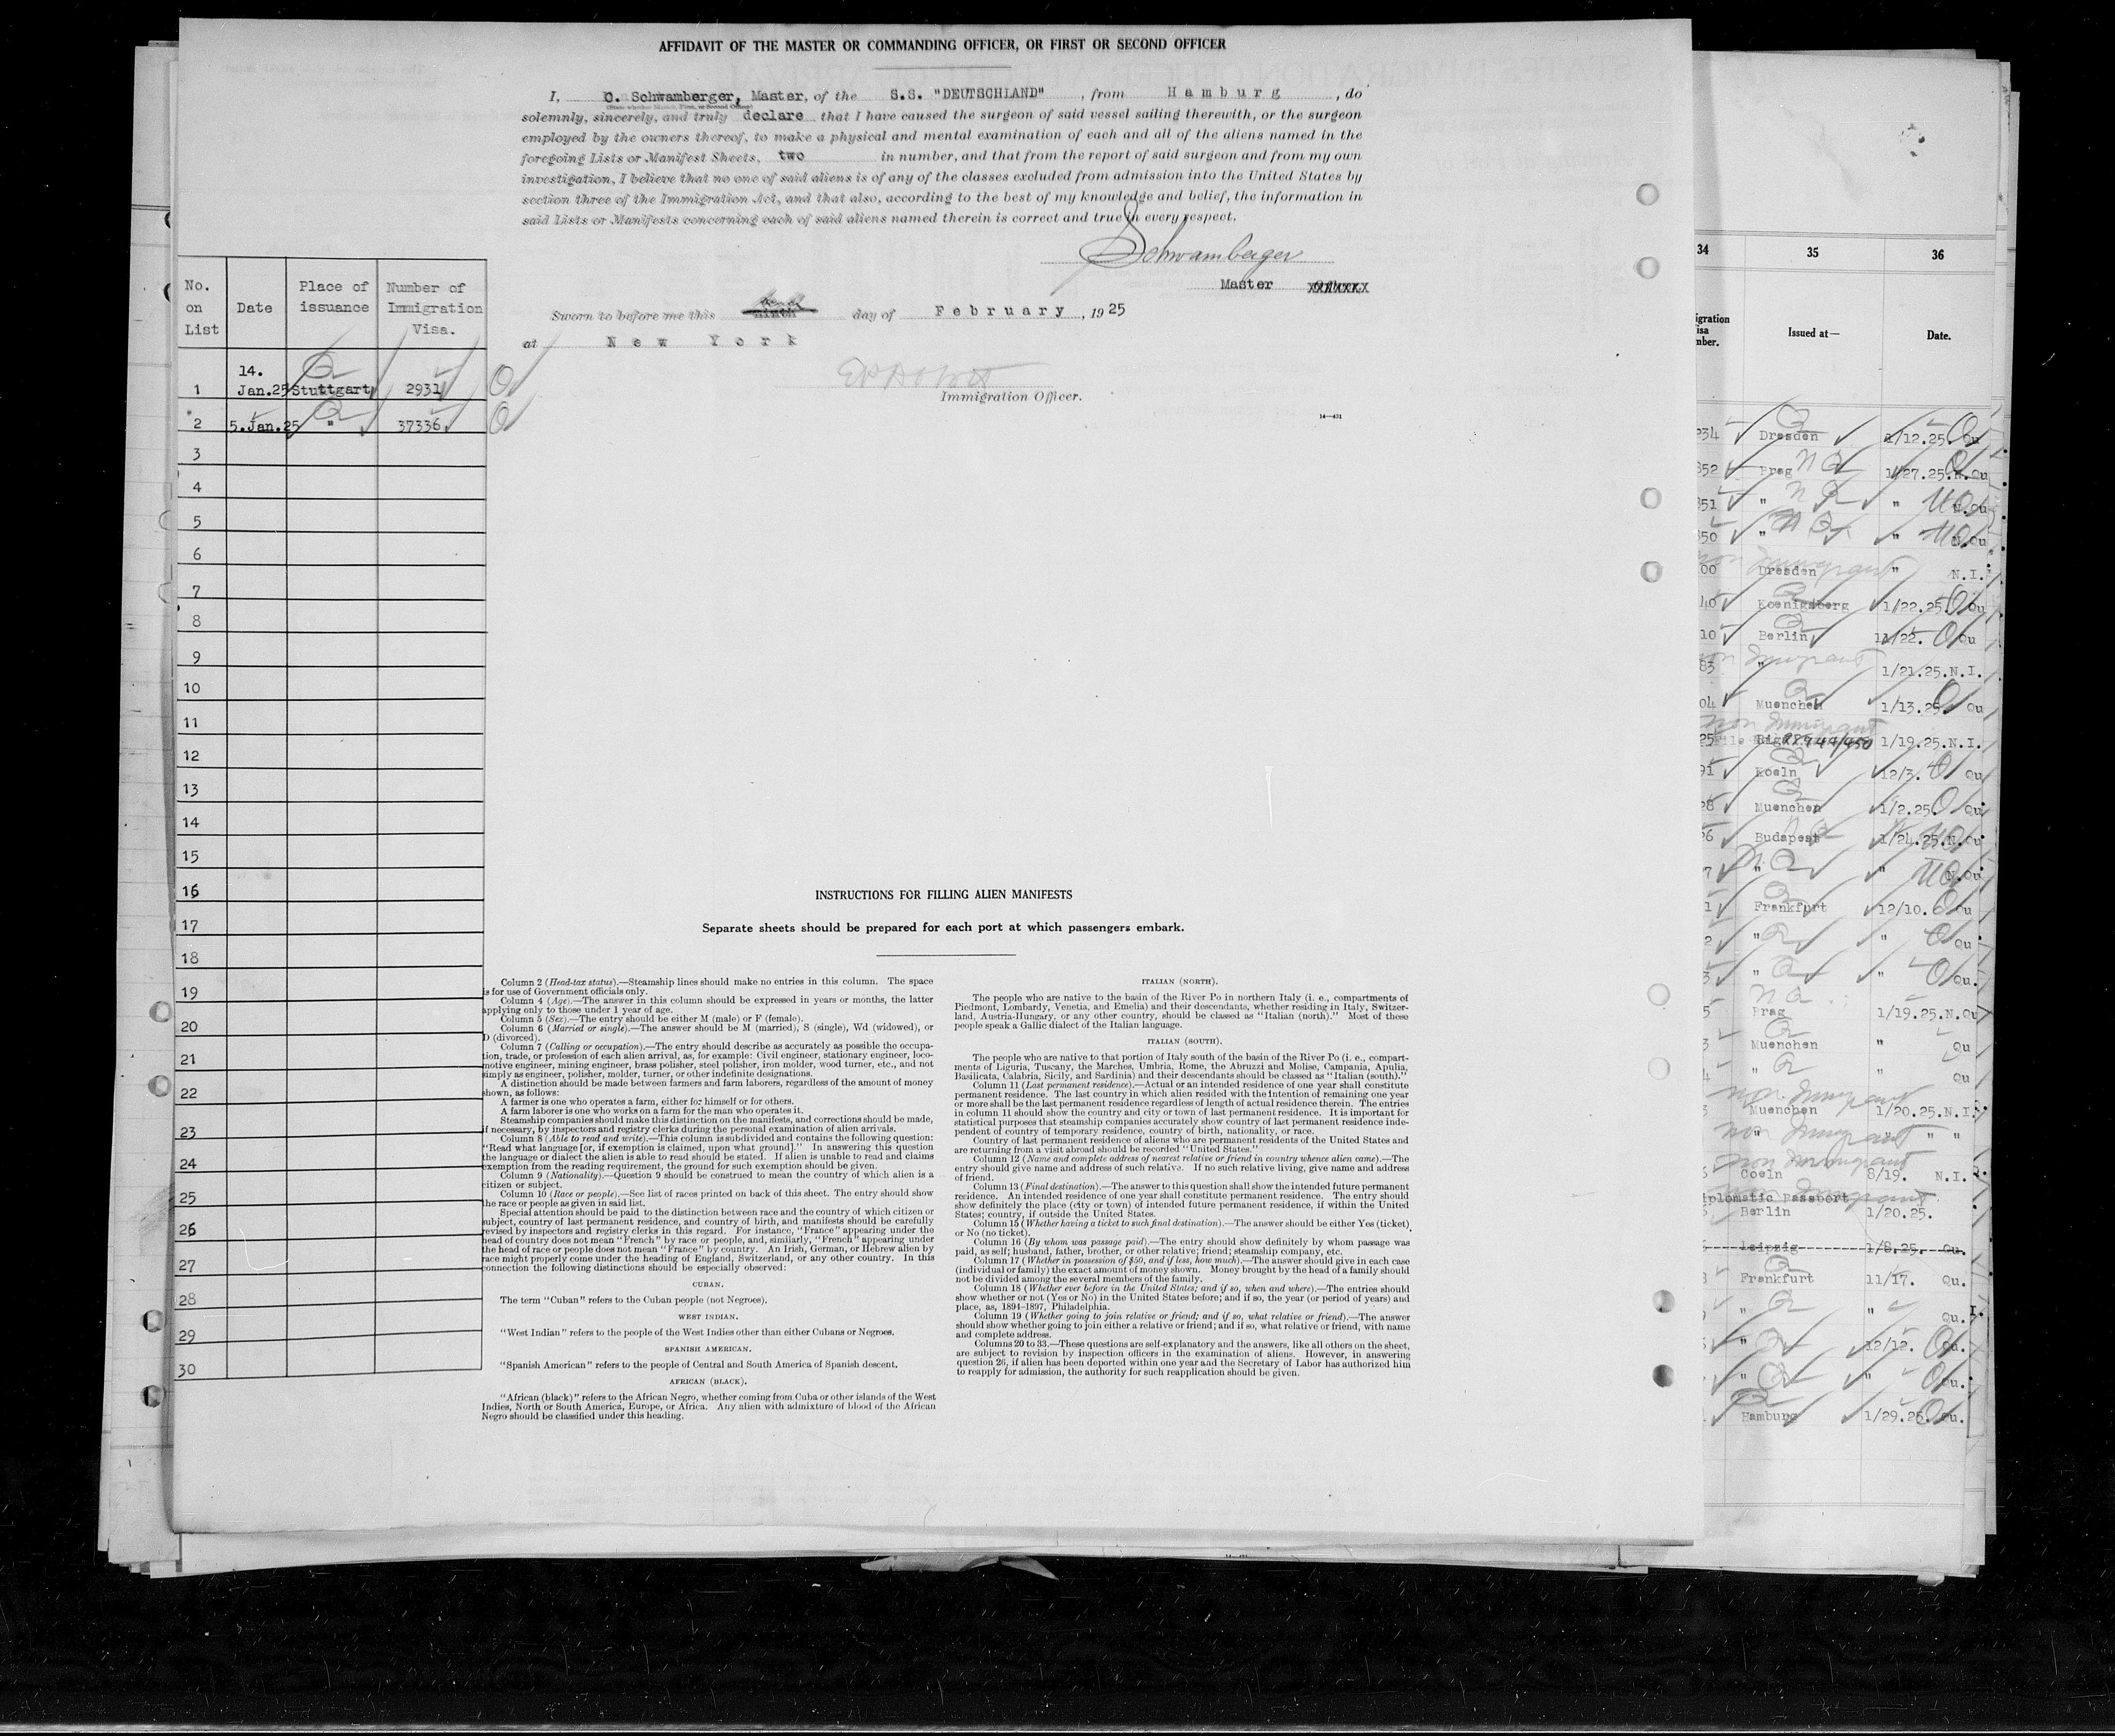 AFFIDAVIT OF THE MASTER OR COMMANDING OFFICER, OR FIRST OR SECOND OFFICER
I, C. Schwamberger, Master, of the S.S. "DEUTSCHLAND", from Hamburg, do
solemnly, sincerely, and truly declare that I have caused the surgeon of said vessel sailing therewith, or the surgeon
employed by the owners thereof, to make a physical and mental examination of each and all of the aliens named in the
foregoing Lists or Manifest Sheets, two in number, and that from the report of said surgeon and from my own
investigation, I believe that no one of said aliens is of any of the classes excluded from admission into the United States by
section three of the Immigration Act, and that also, according to the best of my knowledge and belief, the information in
said Lists or Manifests concerning each of said aliens named therein is correct and true in every respect.
Schwamberger
Master
Sworn to before me this day of February, 1925
at New York
Immigration Officer.
14—431
No. on List Date Place of issuance Number of Immigration Visa.
1 14. Jan.25 Stuttgart 2931
2 5.Jan.25 " 37336
3
4
5
6
7
8
9
10
11
12
13
14
15
16
17
18
19
20
21
22
23
24
25
26
27
28
29
30
INSTRUCTIONS FOR FILLING ALIEN MANIFESTS
Separate sheets should be prepared for each port at which passengers embark.
Column 2 (Head-tax status).—Steamship lines should make no entries in this column. The space
is for use of Government officials only.
Column 4 (Age).—The answer in this column should be expressed in years or months, the latter
applying only to those under 1 year of age.
Column 5 (Sex).—The entry should be either M (male) or F (female).
Column 6 (Married or single).—The answer should be M (married), S (single), Wd (widowed), or
D (divorced).
Column 7 (Calling or occupation).—The entry should describe as accurately as possible the occupa-
tion, trade, or profession of each alien arrival, as, for example: Civil engineer, stationary engineer, loco-
motive engineer, mining engineer, brass polisher, steel polisher, iron molder, wood turner, etc., and not
simply as engineer, polisher, molder, turner, or other indefinite designations.
A distinction should be made between farmers and farm laborers, regardless of the amount of money
shown, as follows:
A farmer is one who operates a farm, either for himself or for others.
A farm laborer is one who works on a farm for the man who operates it.
Steamship companies should make this distinction on the manifests, and corrections should be made,
if necessary, by inspectors and registry clerks during the personal examination of alien arrivals.
Column 8 (Able to read and write).—This column is subdivided and contains the following question:
"Read what language [or, if exemption is claimed, upon what ground]." In answering this question
the language or dialect the alien is able to read should be stated. If alien is unable to read and claims
exemption from the reading requirement, the ground for such exemption should be given.
Column 9 (Nationality).—Question 9 should be construed to mean the country of which alien is a
citizen or subject.
Column 10 (Race or people).—See list of races printed on back of this sheet. The entry should show
the race or people as given in said list.
Special attention should be paid to the distinction between race and the country of which citizen or
subject, country of last permanent residence, and country of birth, and manifests should be carefully
revised by inspectors and registry clerks in this regard. For instance, "France" appearing under the
head of country does not mean "French" by race or people, and, similarly, "French" appearing under
the head of race or people does not mean "France" by country. An Irish, German, or Hebrew alien by
race might properly come under the heading of England, Switzerland, or any other country. In this
connection the following distinctions should be especially observed:
CUBAN.
The term "Cuban" refers to the Cuban people (not Negroes).
WEST INDIAN.
"West Indian" refers to the people of the West Indies other than either Cubans or Negroes.
SPANISH AMERICAN.
"Spanish American" refers to the people of Central and South America of Spanish descent.
AFRICAN (BLACK).
"African (black)" refers to the African Negro, whether coming from Cuba or other islands of the West
Indies, North or South America, Europe, or Africa. Any alien with admixture of blood of the African
Negro should be classified under this heading.
ITALIAN (NORTH).
The people who are native to the basin of the River Po in northern Italy (i. e., compartments of
Piedmont, Lombardy, Venetia, and Emelia) and their descendants, whether residing in Italy, Switzer-
land, Austria-Hungary, or any other country, should be classed as "Italian (north)." Most of these
people speak a Gallic dialect of the Italian language.
ITALIAN (SOUTH).
The people who are native to that portion of Italy south of the basin of the River Po (i. e., compart-
ments of Liguria, Tuscany, the Marches, Umbria, Rome, the Abruzzi and Molise, Campania, Apulia,
Basilicata, Calabria, Sicily, and Sardinia) and their descendants should be classed as "Italian (south)."
Column 11 (Last permanent residence).—Actual or an intended residence of one year shall constitute
permanent residence. The last country in which alien resided with the intention of remaining one year
or more shall be the last permanent residence regardless of length of actual residence therein. The entries
in column 11 should show the country and city or town of last permanent residence. It is important for
statistical purposes that steamship companies accurately show country of last permanent residence inde-
pendent of country of temporary residence, country of birth, nationality, or race.
Country of last permanent residence of aliens who are permanent residents of the United States and
are returning from a visit abroad should be recorded "United States."
Column 12 (Name and complete address of nearest relative or friend in country whence alien came).—The
entry should give name and address of such relative. If no such relative living, give name and address
of friend.
Column 13 (Final destination).—The answer to this question shall show the intended future permanent
residence. An intended residence of one year shall constitute permanent residence. The entry should
show definitely the place (city or town) of intended future permanent residence, if within the United
States; country, if outside the United States.
Column 15 (Whether having a ticket to such final destination).—The answer should be either Yes (ticket)
or No (no ticket).
Column 16 (By whom was passage paid).—The entry should show definitely by whom passage was
paid, as self; husband, father, brother, or other relative; friend; steamship company, etc.
Column 17 (Whether in possession of $50, and if less, how much).—The answer should give in each case
(individual or family) the exact amount of money shown. Money brought by the head of a family should
not be divided among the several members of the family.
Column 18 (Whether ever before in the United States; and if so, when and where).—The entries should
show whether or not (Yes or No) in the United States before; and if so, the year (or period of years) and
place, as, 1894-1897, Philadelphia.
Column 19 (Whether going to join relative or friend; and if so, what relative or friend).—The answer
should show whether going to join either a relative or friend; and if so, what relative or friend, with name
and complete address.
Columns 20 to 33.—These questions are self-explanatory and the answers, like all others on the sheet,
are subject to revision by inspection officers in the examination of aliens. However, in answering
question 26, if alien has been deported within one year and the Secretary of Labor has authorized him
to reapply for admission, the authority for such reapplication should be given.
34 35 36
Issued at— Date.
Dresden 1/12.25. Qu
Prag 1/27.25.N.Qu
" " N.Qu
" " N.Qu
Dresden " N.I.
Koenigsberg 1/22.25. Qu
Berlin 11/22. Qu
" 1/21.25.N.I.
Muenchen 1/13.25 Qu
Non Immigrant
Riga 1/19.25.N.I.
Koeln 12/3. Qu
Muenchen 1/2.25. Qu
Budapest 1/24.25.N.Qu
" " N.Qu
Frankfurt 12/10. Qu
" " Qu
" " Qu.
Prag 1/19.25.N.Qu
Muenchen " Qu
" " Qu
Non Immigrant
Muenchen 1/20.25.N.I.
Non Immigrant " "
Non Immigrant
Coeln 8/19. N.I.
Diplomatic Passport
Berlin 1/20.25.
Leipzig 1/8.25. Qu.
Frankfurt 11/17. Qu.
" " Qu.
" 12/12. Qu.
" " Qu.
Hamburg 1/29.25. Qu.